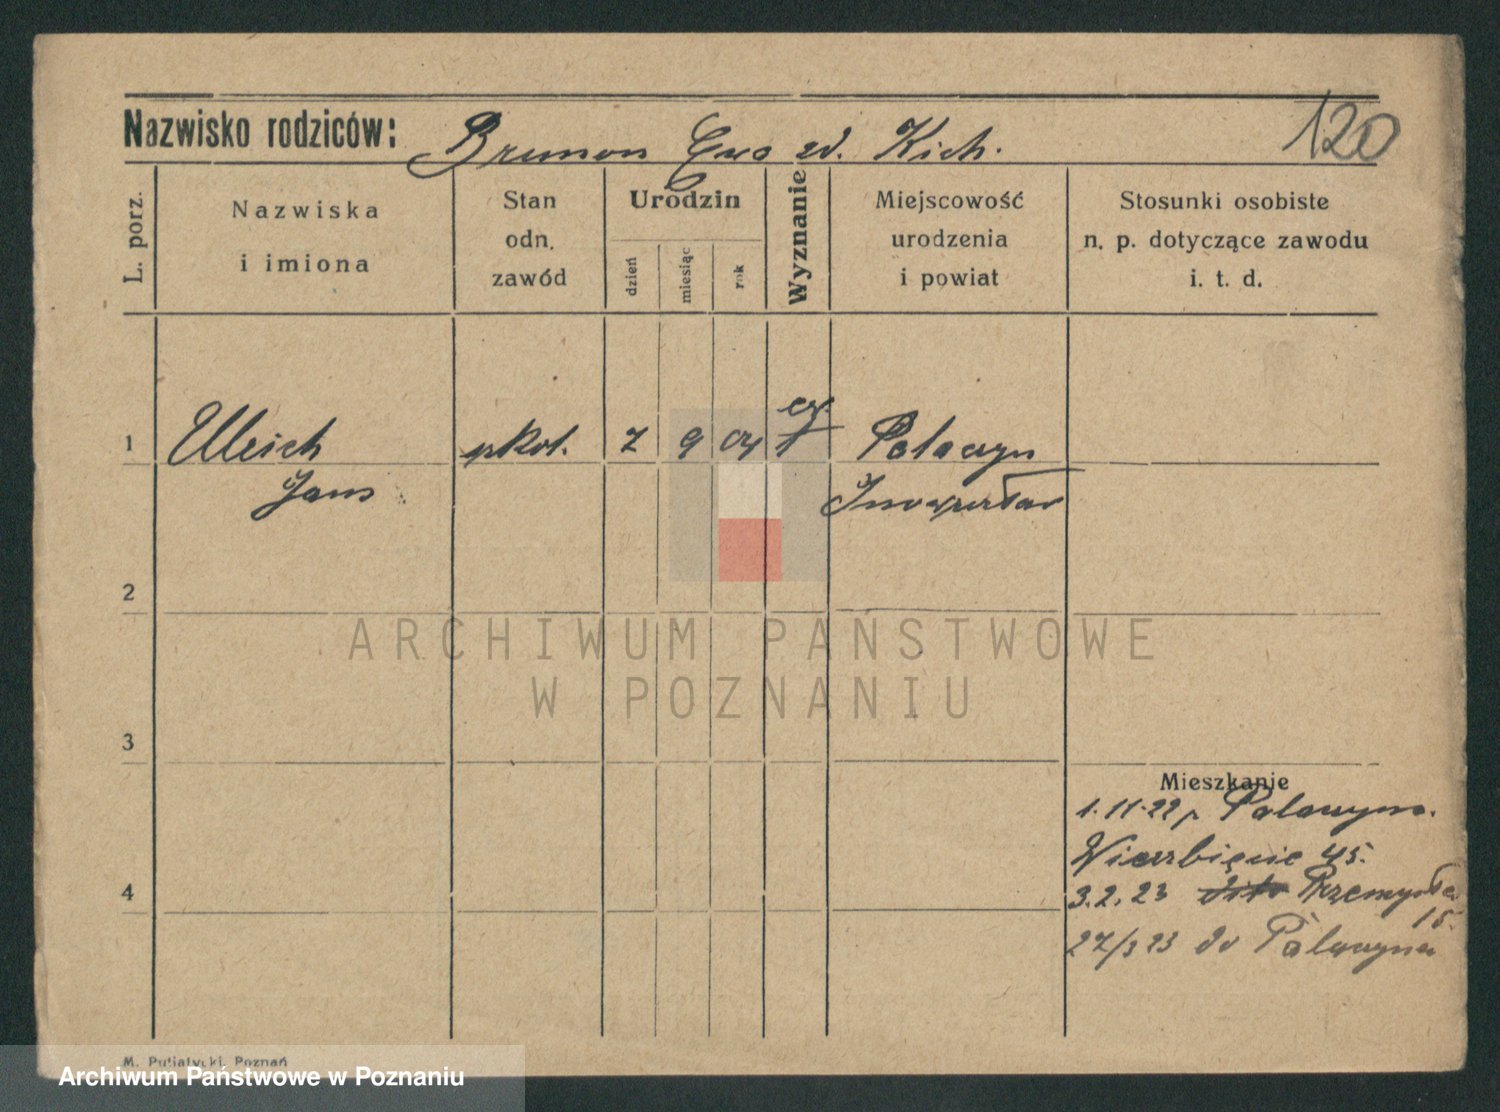 120
Nazwisko rodziców: Brunon Ewa zd. Kich.
L. porz.
Nazwiska
i imiona
Stan
odn.
zawód
Urodzin
dzień
miesiąc
rok
Wyznanie
Miejscowość
urodzenia
i powiat
Stosunki osobiste
n. p. dotyczące zawodu
i. t. d.
1 Ulrich 7 9 04 ew. Palczyn
Inowrocław
2
ARCHIWUM PAŃSTWOWE
W POZNANIU
3
Mieszkanie
1.11.22 Palczyna.
Wierzbięcic 45.
4
3.2.23 Przemysława
15.
27/3 23 do Palczyna
M. Putiatycki, Poznań
Archiwum Państwowe w Poznaniu